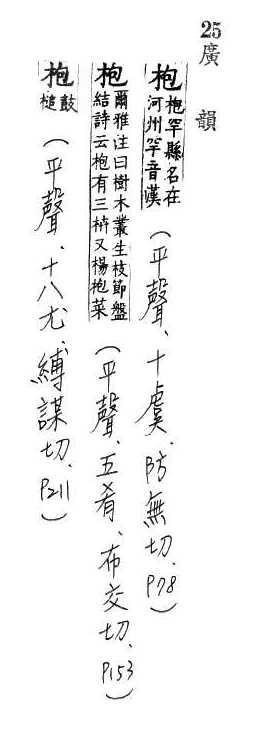 25廣韻
枹枹罕縣名在河州罕音漢(平聲、十虞、防無切、P78)
枹爾雅注曰樹木叢生枝節盤結詩云枹有三枿又楊枹菜(平聲、五肴、布交切、P153)
枹鼓槌(平聲、十八尤、縛謀切、P211)